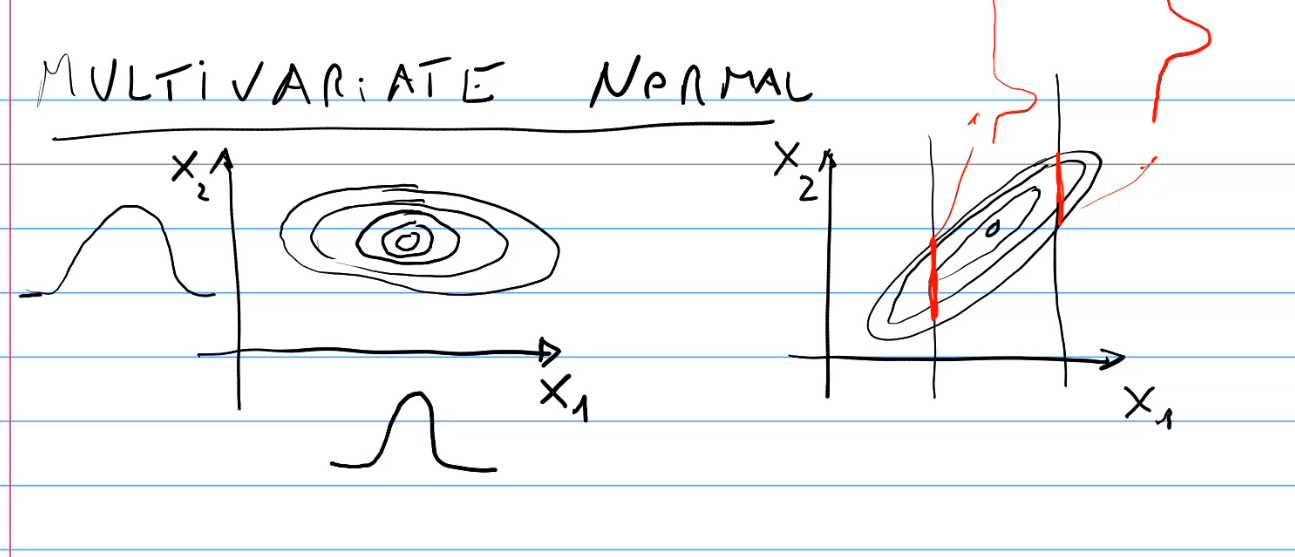 MULTIVARIATE NORMAL
X2
X1
X2
X1